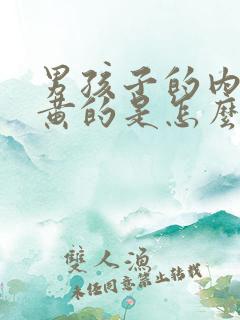 男孩子的内
黄的是怎麼
雙人漁
未经同意禁止转载